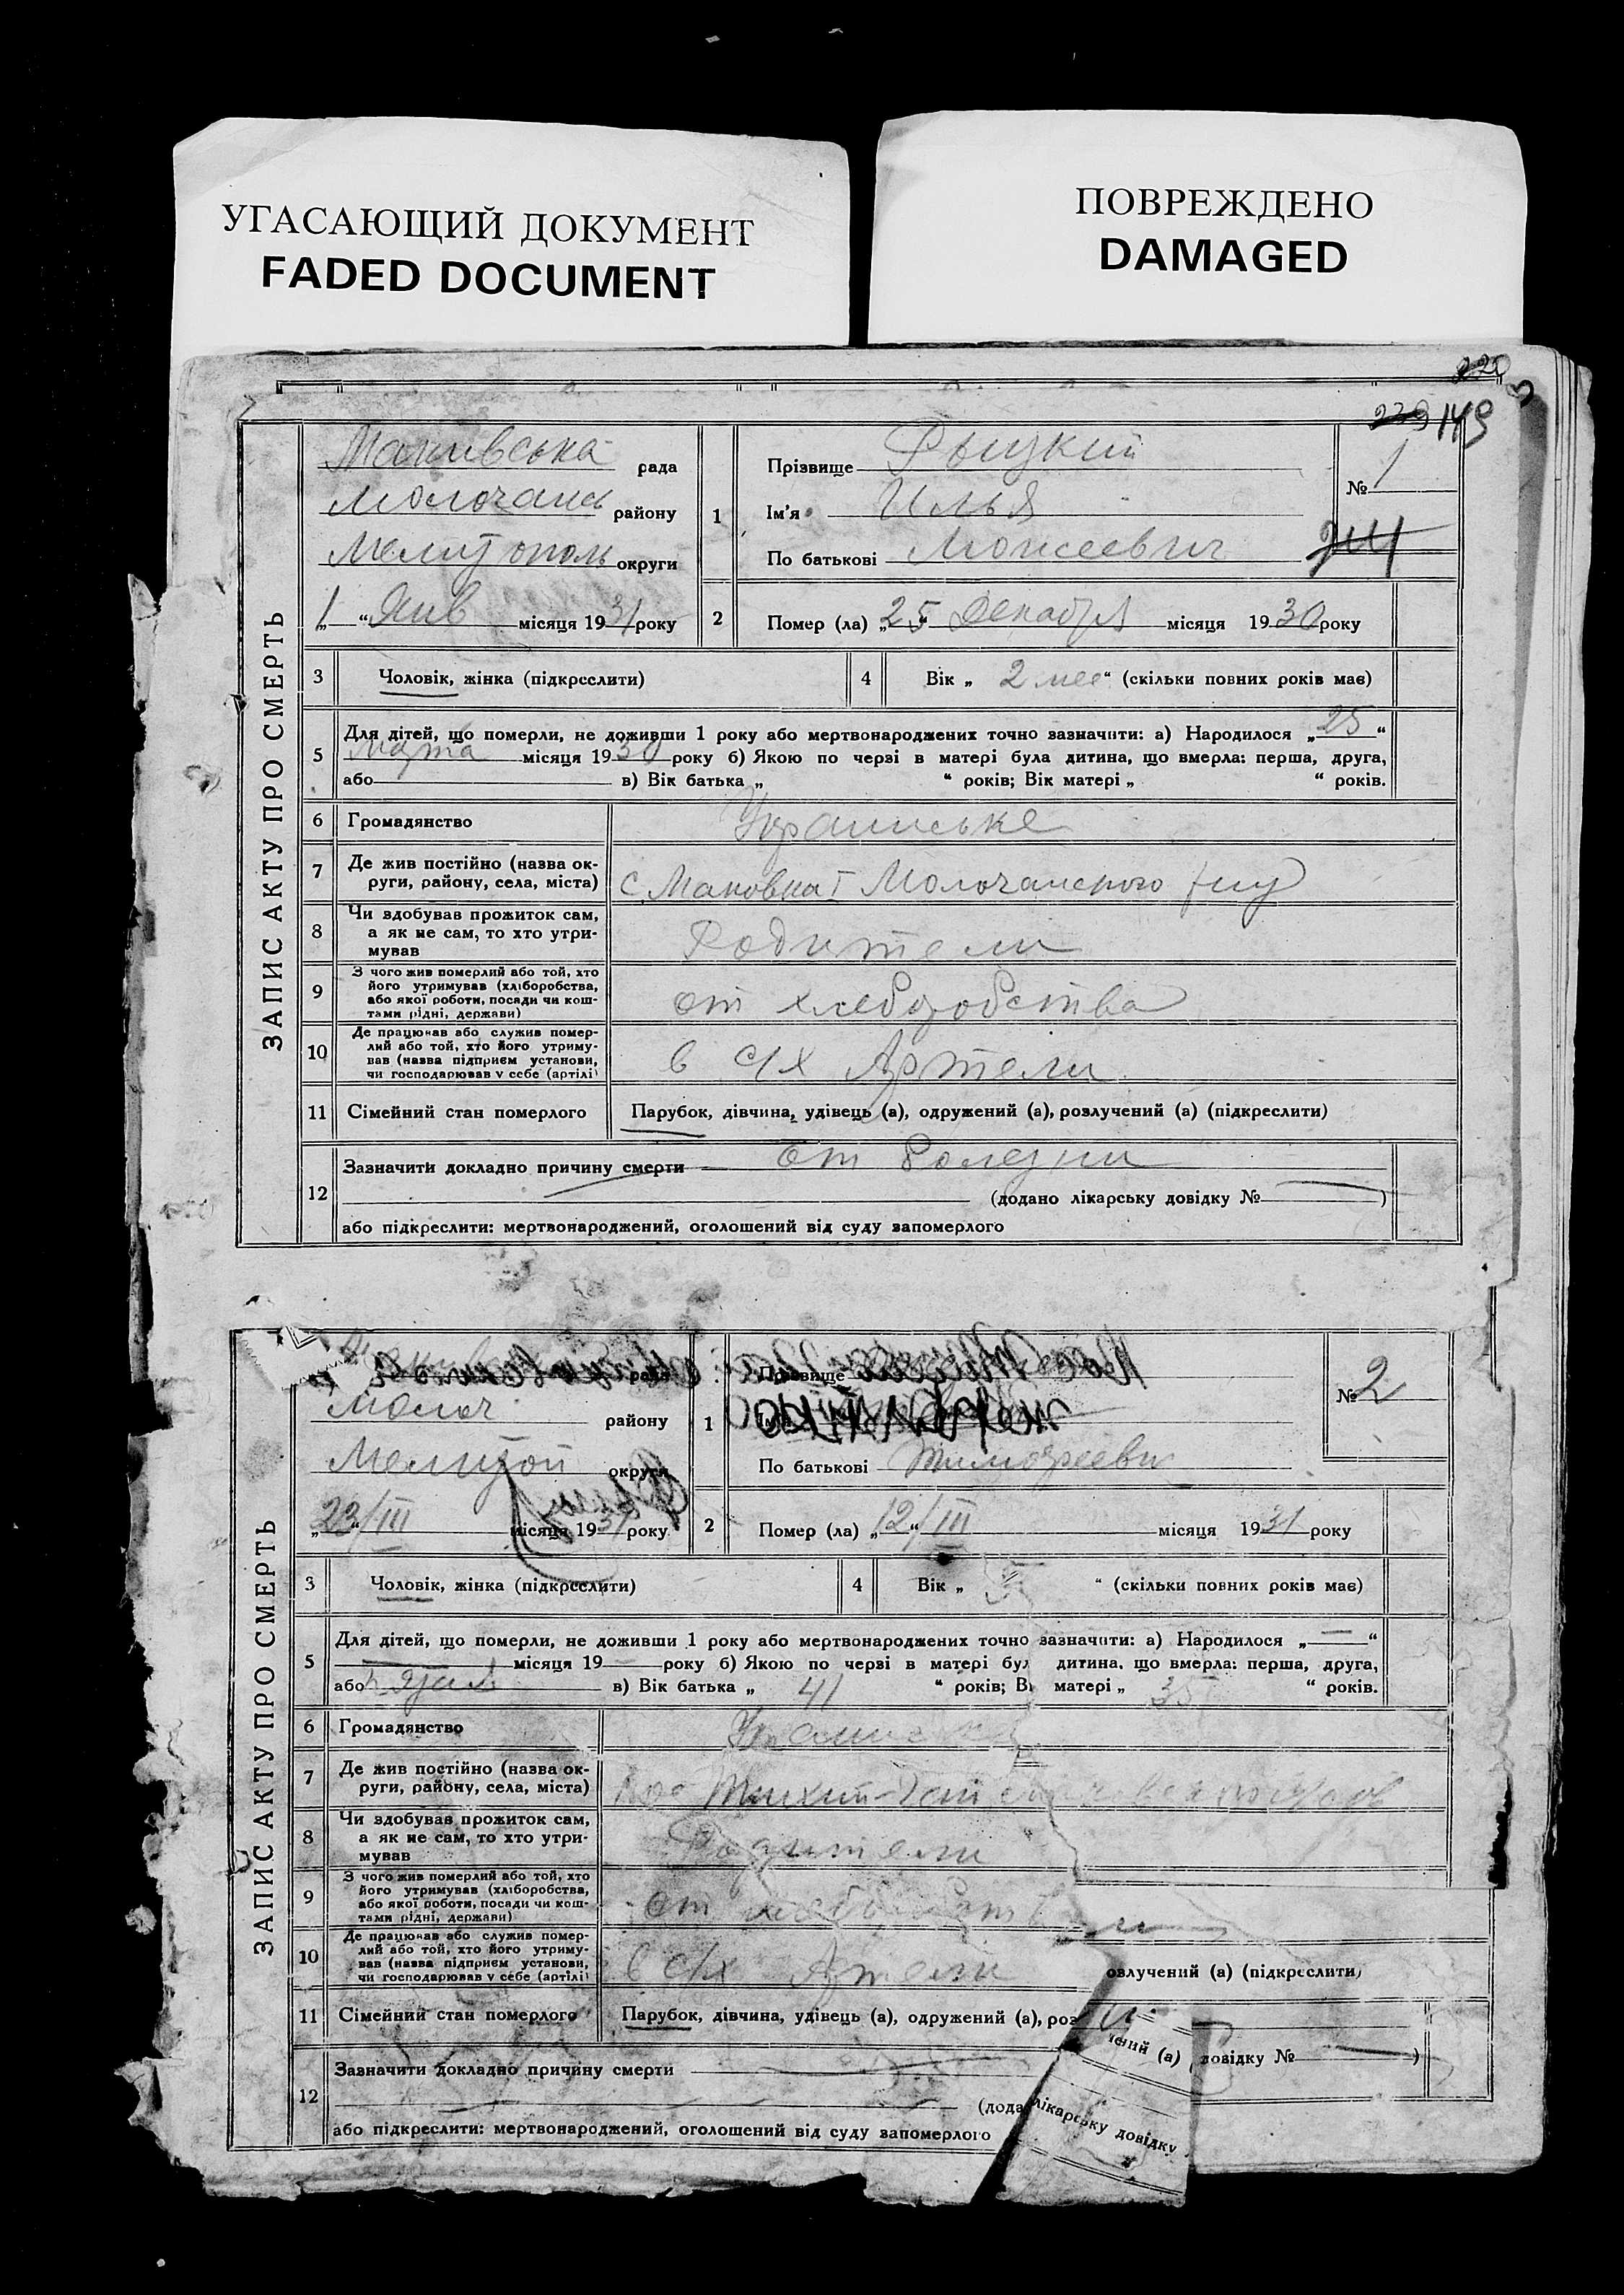 УГАСАЮЩИЙ ДОКУМЕНТ
FADED DOCUMENT
ПОВРЕЖДЕНО
DAMAGED
220
229 149
ЗАПИС АКТУ ПРО СМЕРТЬ
рада
району
Мелитополь округи
„1“ Янв місяця 1931 року
1
Прізвище
Ім'я Илья
По батькові Моисеевич
№ 1
2 Помер (ла) „25“ Декабря місяця 1930 року
3 Чоловік, жінка (підкреслити)
4 Вік „2 мес“ (скільки повних років має)
5 Для дітей, що померли, не доживши 1 року або мертвонароджених точно зазначити: а) Народилося „25“
Марта місяця 1930 року б) Якою по черзі в матері була дитина, що вмерла: перша, друга,
або в) Вік батька „ “ років; Вік матері „ “ років.
6 Громадянство Украинське
7 Де жив постійно (назва ок-
руги, району, села, міста) с. Маковка I Молочанского
8 Чи здобував прожиток сам,
а як не сам, то хто утри-
мував Родители
9 З чого жив померлий або той, хто
його утримував (хліборобства,
або якої роботи, посади чи кош-
тами рідні, держави) от хлеборобства
10 Де працював або служив помер-
лий або той, хто його утриму-
вав (назва підприєм установи,
чи господарював у себе (артілі) в с/х Артели
11 Сімейний стан померлого Парубок, дівчина, удівець (а), одружений (а), розлучений (а) (підкреслити)
12 Зазначити докладно причину смерти От болезни
(додано лікарську довідку № )
або підкреслити: мертвонароджений, оголошений від суду запомерлого
ЗАПИС АКТУ ПРО СМЕРТЬ
рада
Молоч району
Мелитоп округи
„23“/III місяця 1931 року
1
Прізвище
Ім'я
По батькові Тимофеевич
№ 2
2 Помер (ла) „12“/III місяця 1931 року
3 Чоловік, жінка (підкреслити)
4 Вік „ “ (скільки повних років має)
5 Для дітей, що померли, не доживши 1 року або мертвонароджених точно зазначити: а) Народилося „—“
місяця 19— року б) Якою по черзі в матері бул дитина, що вмерла: перша, друга,
або в) Вік батька „41“ років; В матері „35“ років.
6 Громадянство
7 Де жив постійно (назва ок-
руги, району, села, міста)
8 Чи здобував прожиток сам,
а як не сам, то хто утри-
мував Родители
9 З чого жив померлий або той, хто
його утримував (хліборобства,
або якої роботи, посади чи кош-
тами рідні, держави) от
10 Де працював або служив помер-
лий або той, хто його утриму-
вав (назва підприєм установи,
чи господарював у себе (артілі) в с/х Артели
озлучений (а) (підкреслити)
11 Сімейний стан померлого Парубок, дівчина, удівець (а), одружений (а), роз
ений (а)
довідку № )
12 Зазначити докладно причину смерти
(дода
лікарську довідку
або підкреслити: мертвонароджений, оголошений від суду запомерлого